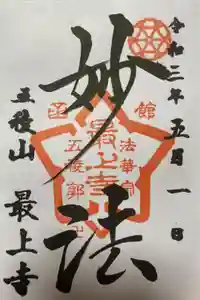 令和三年五月一日
妙法
函館
法華宗
最上寺
五稜郭
五稜山
最上寺